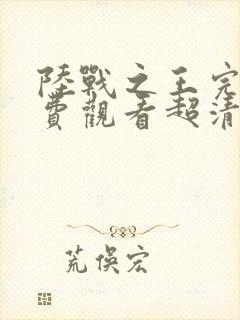 陸戰之王完
費觀看超清
荒俁宏